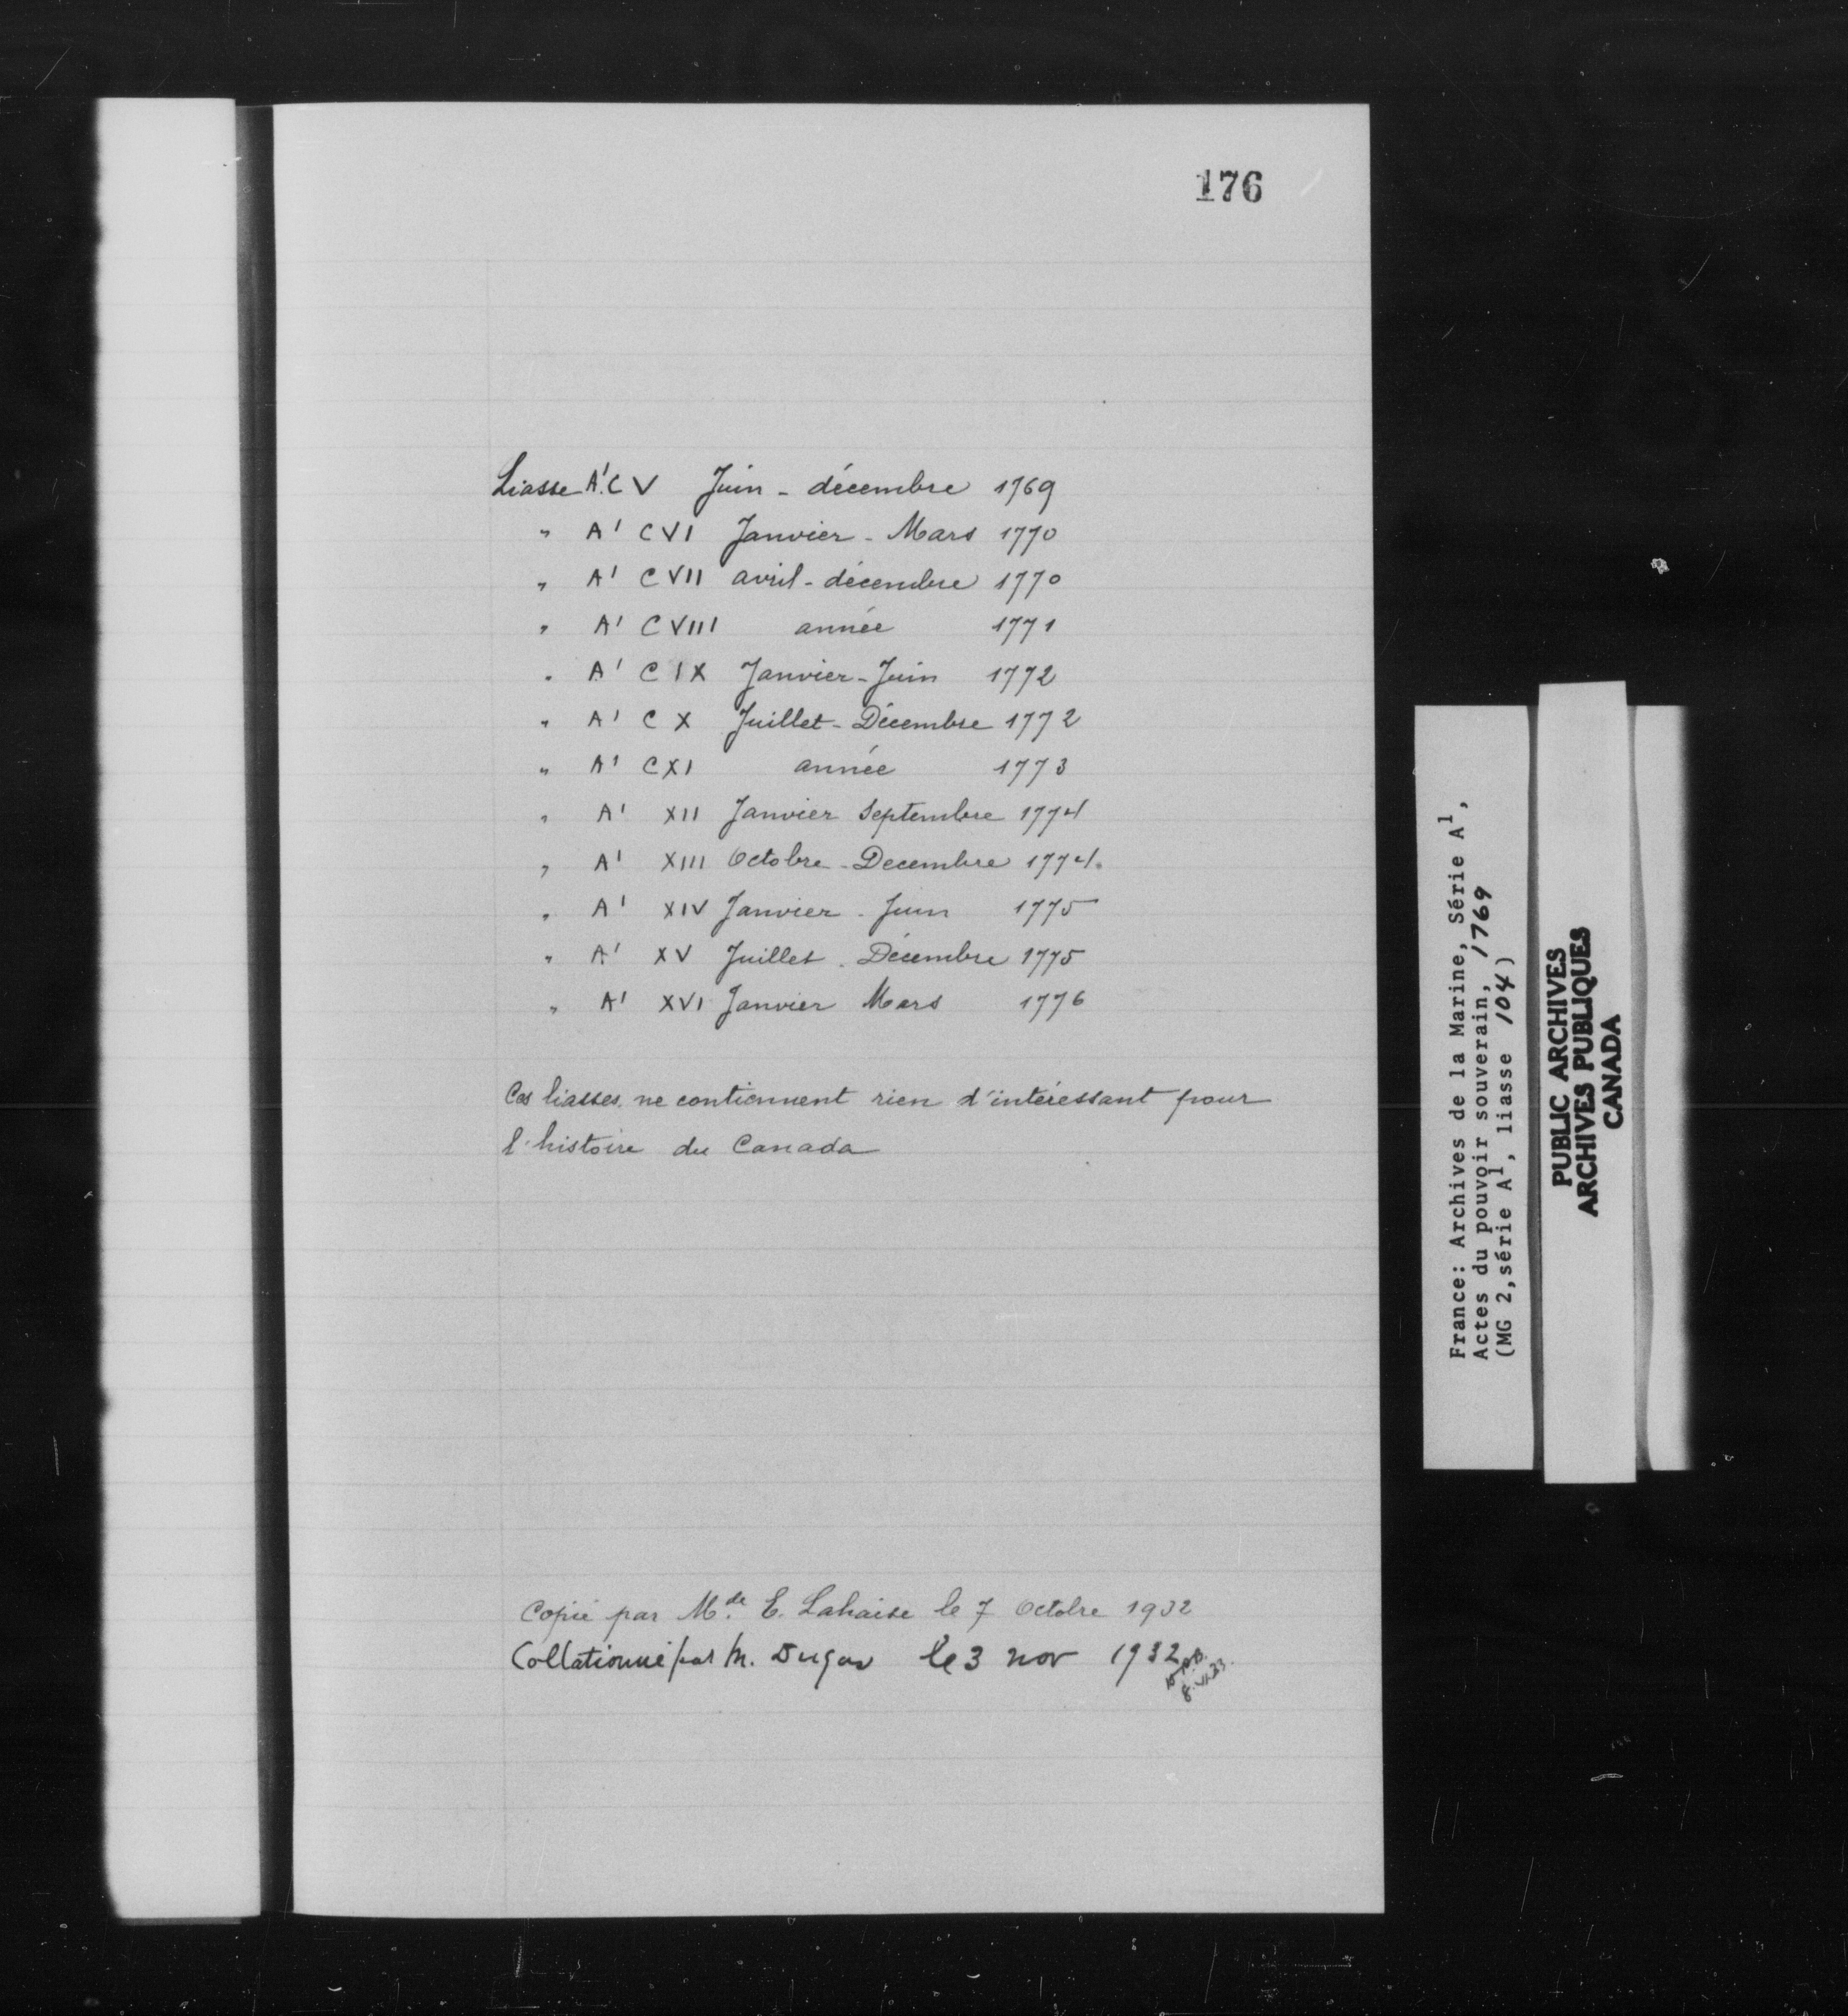 176
Liasse A¹. C V Juin - décembre 1769
" A¹ CVI Janvier - Mars 1770
" A¹ CVII avril - décembre 1770
" A¹ CVIII année 1771
" A¹ C IX Janvier - Juin 1772
" A¹ C X Juillet - Décembre 1772
" A¹ CXI année 1773
" A¹ XII Janvier Septembre 1774
" A¹ XIII Octobre - Decembre 1774.
" A¹ XIV Janvier - Juin 1775
" A¹ XV Juillet - Décembre 1775
" A¹ XVI Janvier Mars 1776
Ces liasses ne contiennent rien d'intéressant pour
l'histoire du Canada
Copié par Mde. E. Lahaise le 7 Octobre 1932
Collationné par M. Dugas le 3 nov 1932
France: Archives de la Marine, Série A¹,
Actes du pouvoir souverain, 1769
(MG 2, série A¹, liasse 104)
PUBLIC ARCHIVES
ARCHIVES PUBLIQUES
CANADA